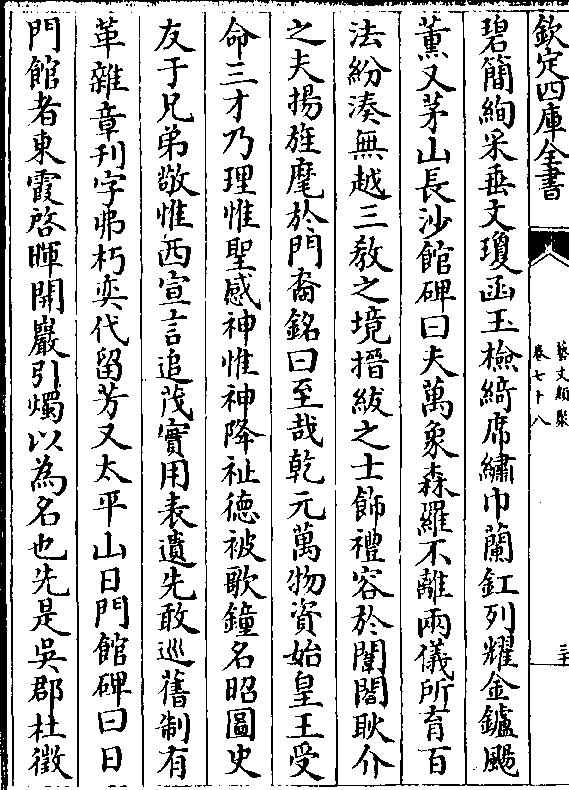 欽定四庫全書
藝文類聚
卷七十八
三十
碧簡絢采垂文瓊函玉檢綺席繡巾蘭釭列耀金鑪颺
薰又茅山長沙館碑曰夫萬象森羅不離兩儀所育百
法紛湊無越三教之境搢紱之士飾禮容於闈閤耿介
之夫揚旌麾於門裔銘曰至哉乾元萬物資始皇王受
命三才乃理惟聖感神惟神降祉德被歌鐘名昭圖史
友于兄弟敬惟西宣言追茂實用表遺先敢巡舊制有
革雜章刊字弗朽奕代留芳又太平山日門館碑曰日
門館者東霞啓暉開巖引燭以為名也先是吳郡杜徵